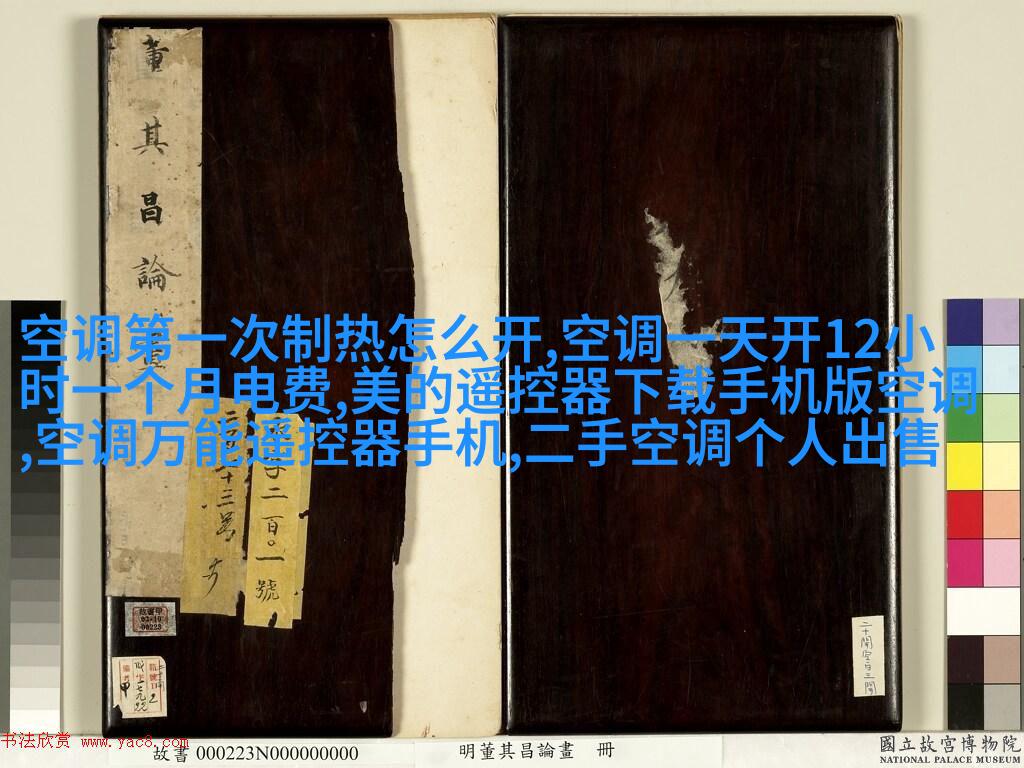 董其昌論畫
空调第一次制热怎么开,空调一天开12小
时一个月电费,美的遥控器下载手机版空调
,空调万能遥控器手机,二手空调个人出售
二百〇一號
十三
故書甲
03-10
00223
二十開空白三開
书法欣赏 www.yac8.com
故書 000223N000000000
明董其昌論畫 冊
國立故宮博物院
NATIONAL PALACE MUSEUM